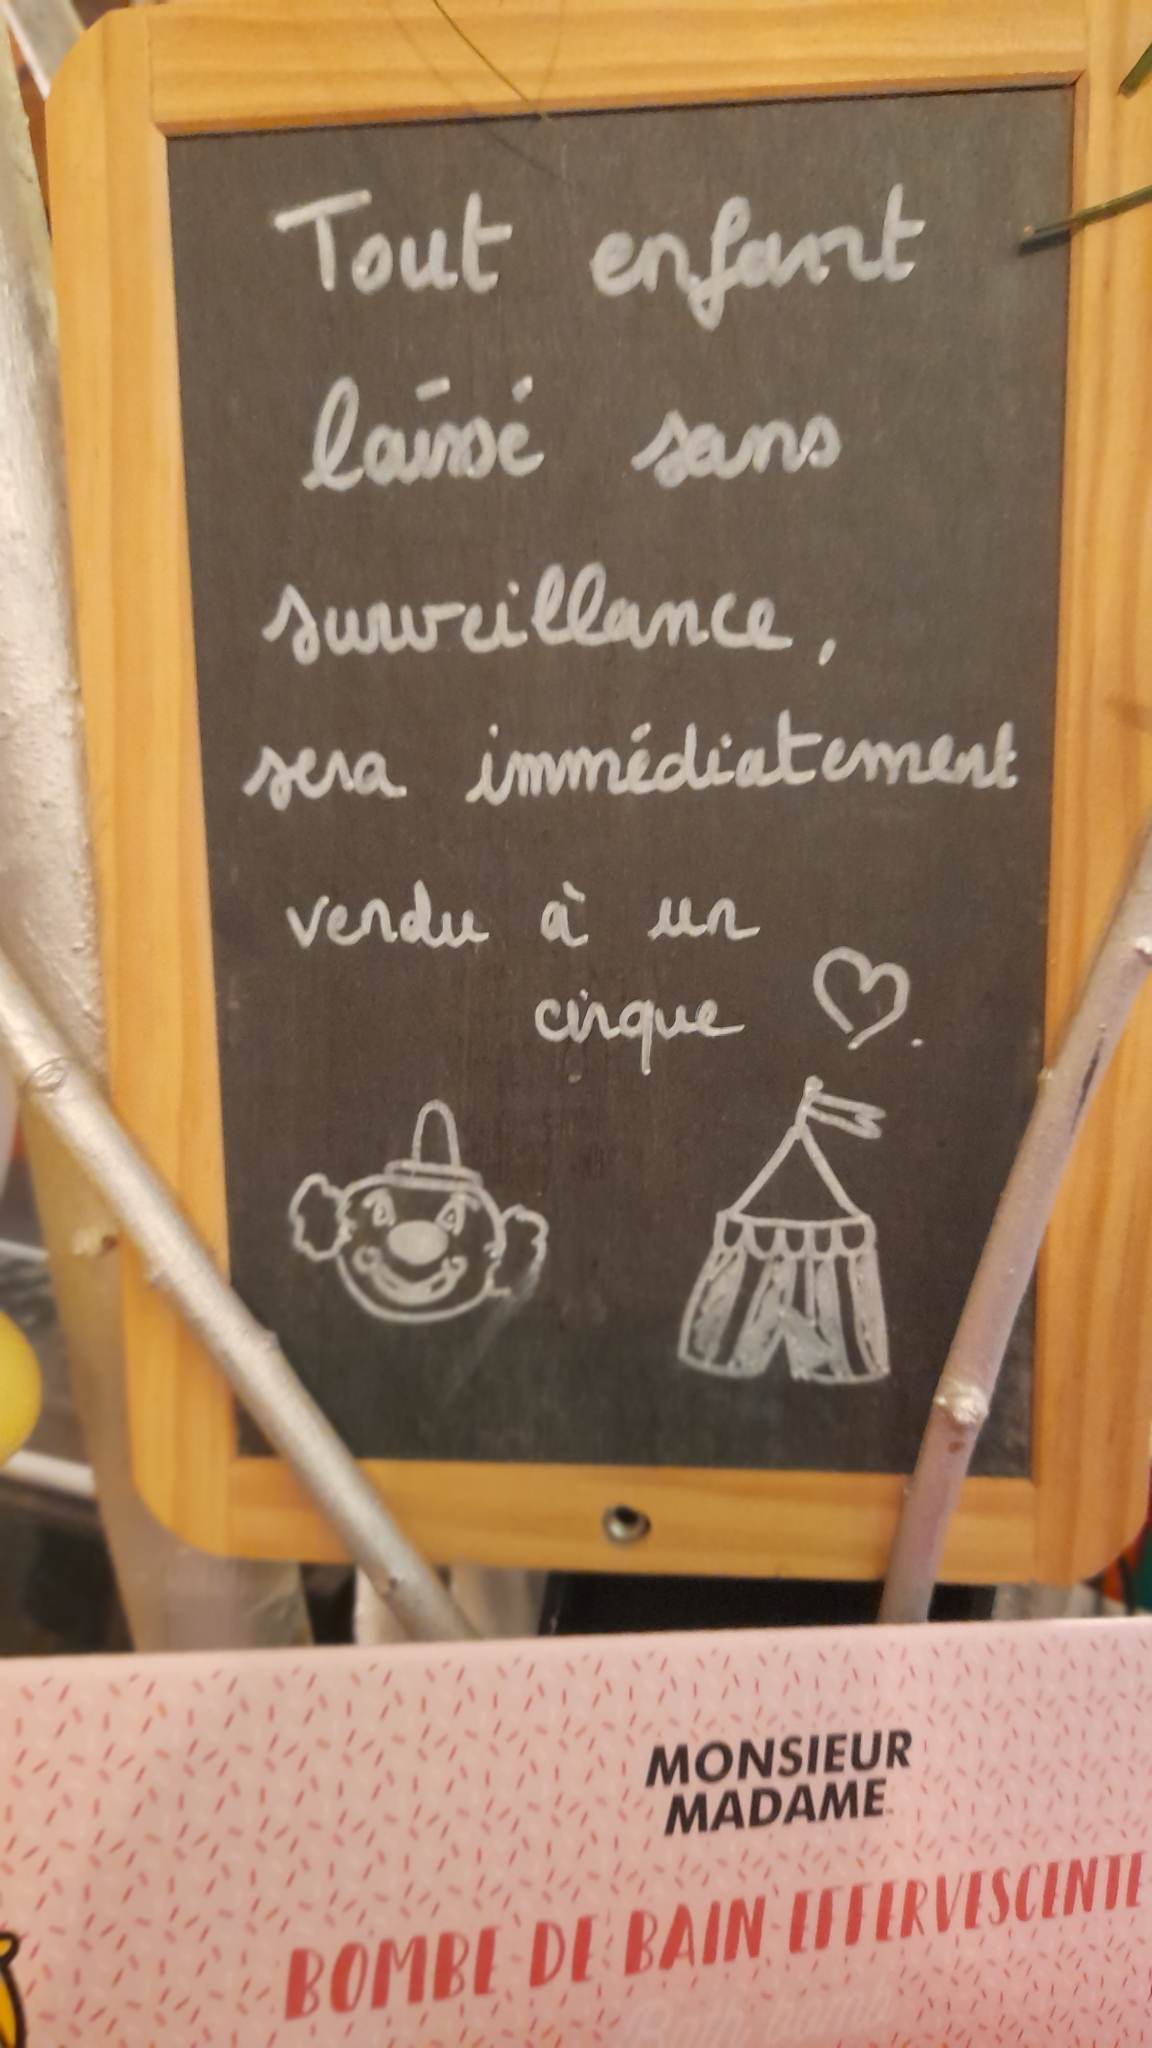 Tout enfant
laissé sans
surveillance,
sera immédiatement
vendu à un
cirque ♡.
MONSIEUR
MADAME
BOMBE DE BAIN EFFERVESCENTE
Bath bomb